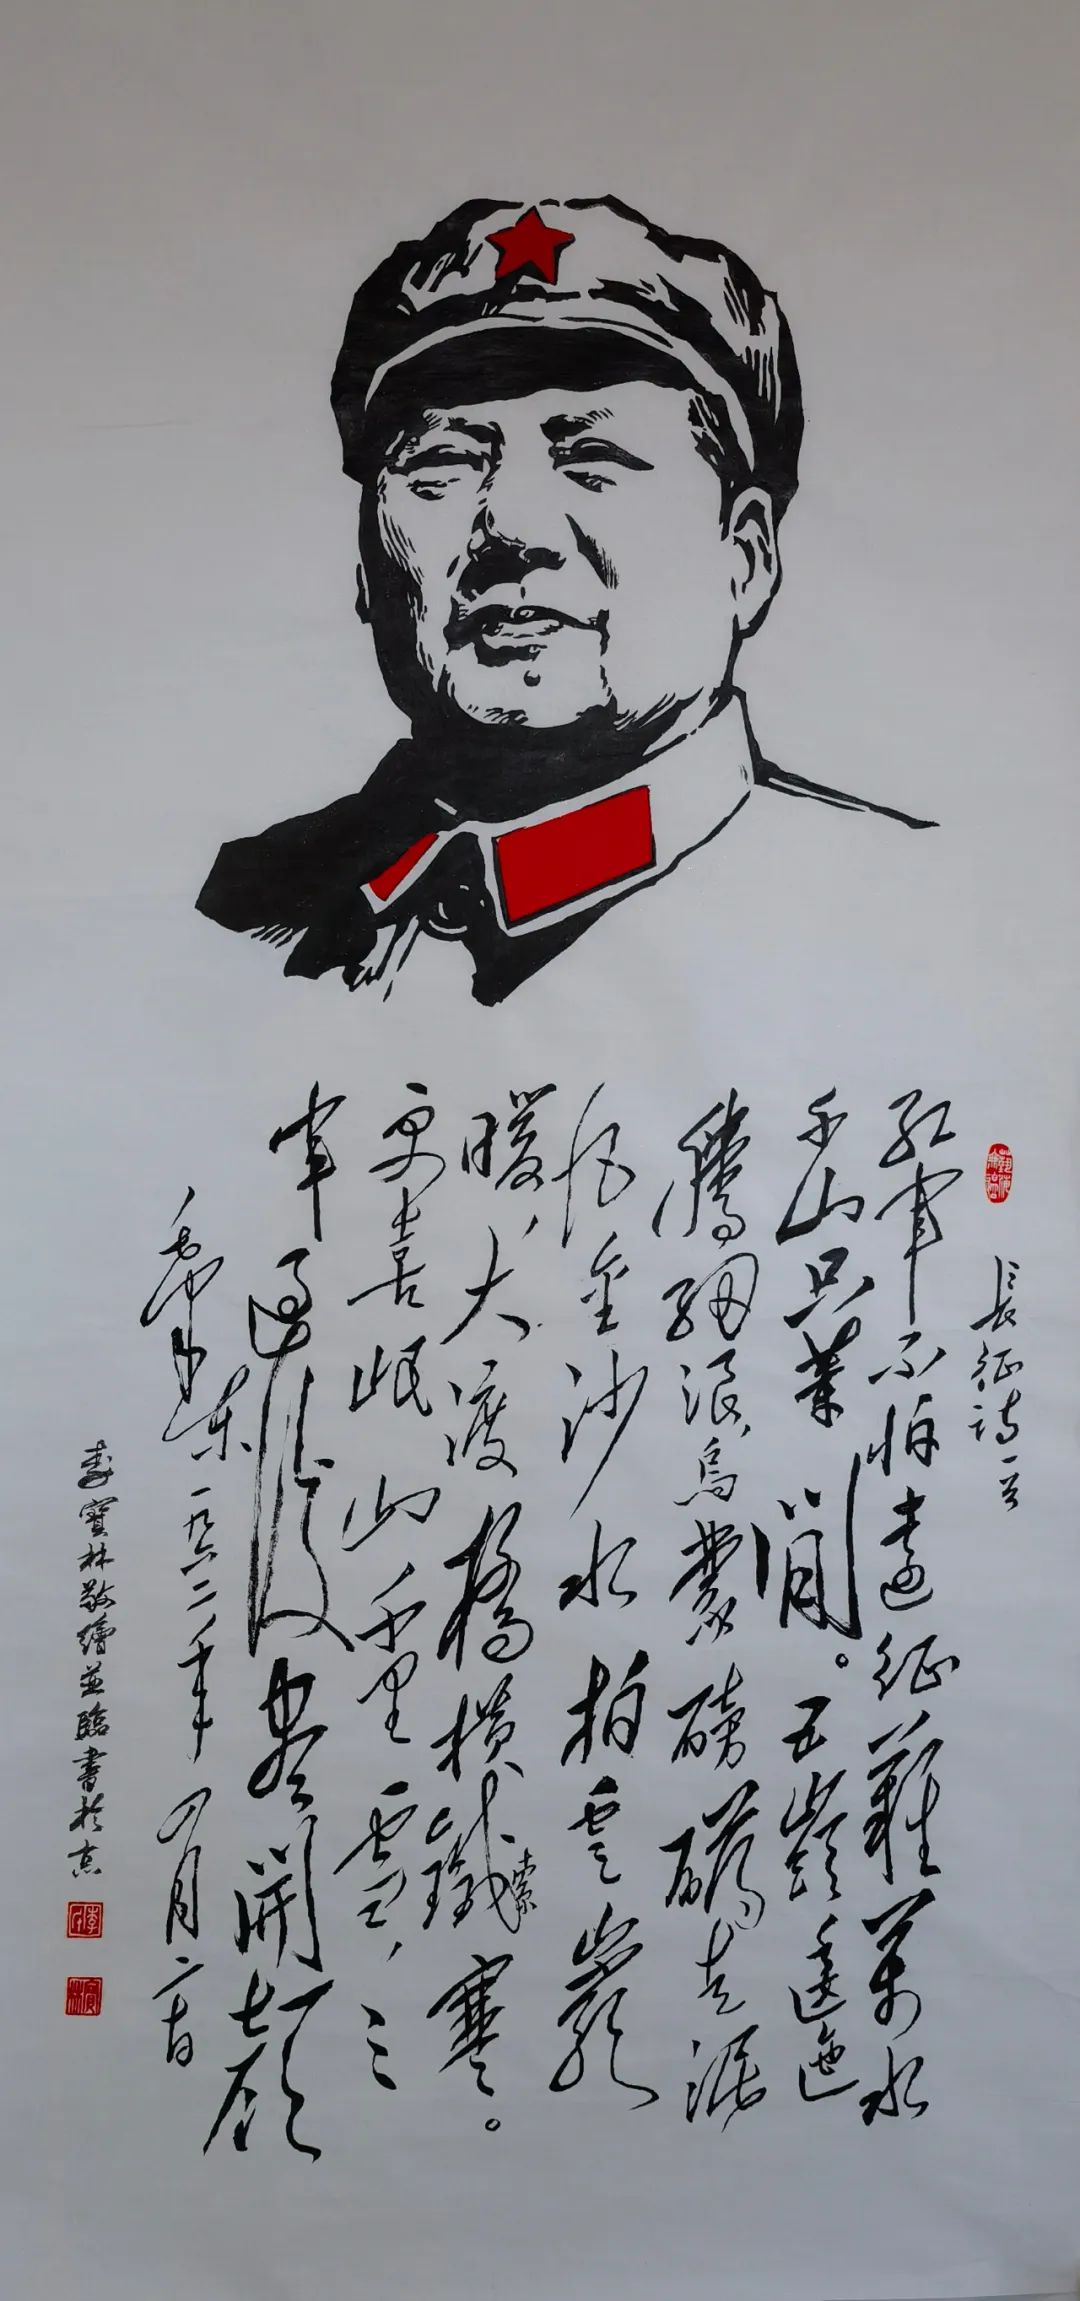 長征詩一首
紅軍不怕遠征難萬水
千山只等閒。五嶺逶迤
騰細浪,烏蒙磅礴走泥
丸金沙水拍雲巖
暖,大渡橋橫鐵索寒。
更喜岷山千里雪,三
軍過後盡開顏
毛澤東 一九六二年四月二十日
李寶林敬繪並臨書於京